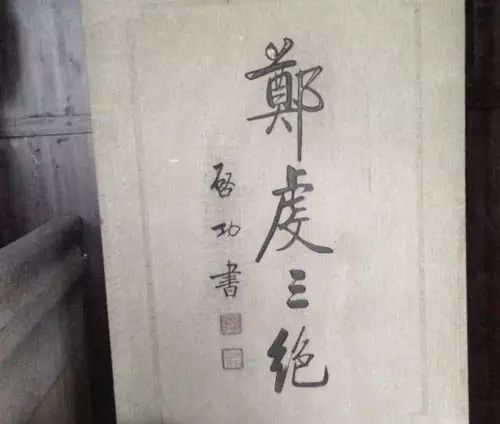 鄭虔三絶
啓功書